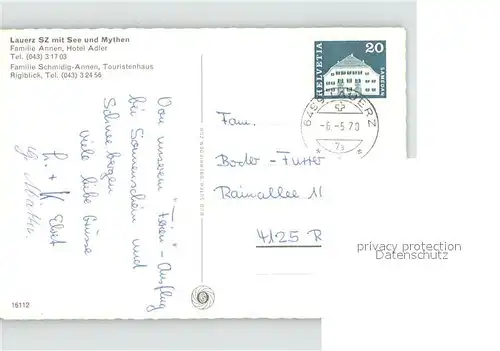 Lauerz SZ mit See und Mythen
Familie Annen, Hotel Adler
Tel. (043) 3 17 03
Familie Schmidig-Annen, Touristenhaus
Rigiblick, Tel. (043) 3 24 56
Von unserem "Ferien-Ausflug
bei Sonnenschein und
Schneebergen
viele liebe Grüsse
L. + K. Elst
HELVETIA
20
SAMEDAN
6499 LAUERZ
-6.-5.70
Fam.
Boder-Futter
Rainallee 11
4125 R
privacy protection
Datenschutz
16112